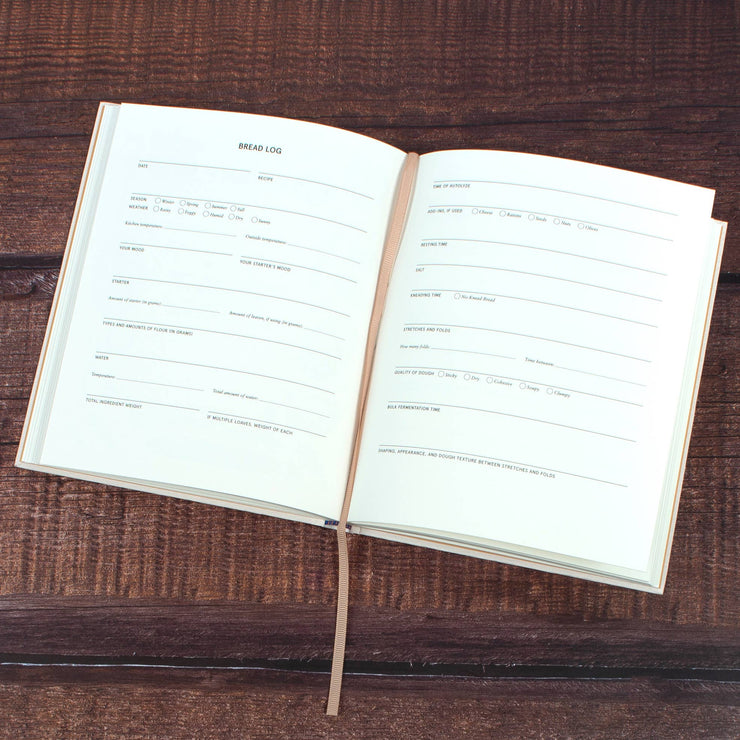 BREAD LOG
DATE RECIPE
SEASON Winter Spring Summer Fall
WEATHER Rainy Foggy Humid Dry Sunny
Kitchen temperature Outside temperature
YOUR MOOD YOUR STARTER'S MOOD
STARTER
Amount of starter (in grams) Amount of leaven, if using (in grams)
TYPES AND AMOUNTS OF FLOUR (IN GRAMS)
WATER
Temperature Total amount of water
TOTAL INGREDIENT WEIGHT IF MULTIPLE LOAVES, WEIGHT OF EACH
TIME OF AUTOLYSE
ADD-INS, IF USED Cheese Raisins Seeds Nuts Olives
RESTING TIME
SALT
KNEADING TIME No Knead Bread
STRETCHES AND FOLDS
How many folds Time between
QUALITY OF DOUGH Sticky Dry Cohesive Soupy Clumpy
BULK FERMENTATION TIME
SHAPING, APPEARANCE, AND DOUGH TEXTURE BETWEEN STRETCHES AND FOLDS